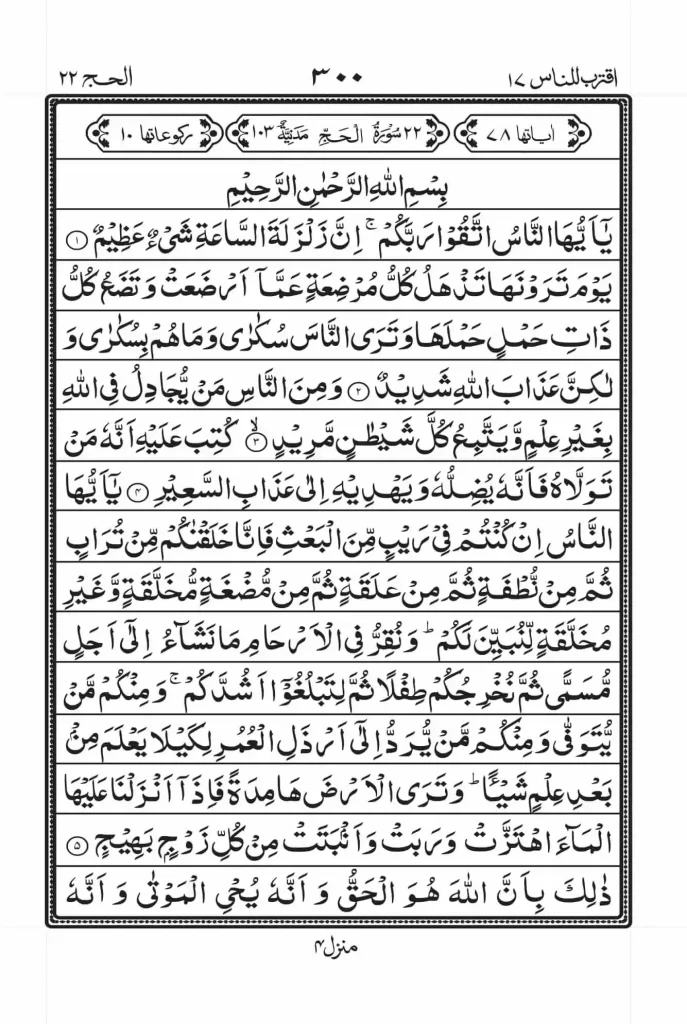 اقترب للناس ۱۷ ۳۰۰ الحج ۲۲
اٰیاتها ۷۸ ۲۲ سُوْرَةُ الْحَجِّ مَدَنِيَّةٌ ۱۰۳ رکوعاتها ۱۰
بِسْمِ اللهِ الرَّحْمٰنِ الرَّحِيْمِ
يٰۤاَيُّهَا النَّاسُ اتَّقُوْا رَبَّكُمْ ۚ اِنَّ زَلْزَلَةَ السَّاعَةِ شَىْءٌ عَظِيْمٌ ۱
يَوْمَ تَرَوْنَهَا تَذْهَلُ كُلُّ مُرْضِعَةٍ عَمَّاۤ اَرْضَعَتْ وَتَضَعُ كُلُّ
ذَاتِ حَمْلٍ حَمْلَهَا وَتَرَى النَّاسَ سُكٰرٰى وَمَا هُمْ بِسُكٰرٰى وَ
لٰكِنَّ عَذَابَ اللهِ شَدِيْدٌ ۲ وَمِنَ النَّاسِ مَنْ يُّجَادِلُ فِى اللهِ
بِغَيْرِ عِلْمٍ وَّيَتَّبِعُ كُلَّ شَيْطٰنٍ مَّرِيْدٍ ۙ ۳ كُتِبَ عَلَيْهِ اَنَّهٗ مَنْ
تَوَلَّاهُ فَاَنَّهٗ يُضِلُّهٗ وَيَهْدِيْهِ اِلٰى عَذَابِ السَّعِيْرِ ۴ يٰۤاَيُّهَا
النَّاسُ اِنْ كُنْتُمْ فِىْ رَيْبٍ مِّنَ الْبَعْثِ فَاِنَّا خَلَقْنٰكُمْ مِّنْ تُرَابٍ
ثُمَّ مِنْ نُّطْفَةٍ ثُمَّ مِنْ عَلَقَةٍ ثُمَّ مِنْ مُّضْغَةٍ مُّخَلَّقَةٍ وَّغَيْرِ
مُخَلَّقَةٍ لِّنُبَيِّنَ لَكُمْ ؕ وَنُقِرُّ فِى الْاَرْحَامِ مَا نَشَآءُ اِلٰٓى اَجَلٍ
مُّسَمًّى ثُمَّ نُخْرِجُكُمْ طِفْلًا ثُمَّ لِتَبْلُغُوْۤا اَشُدَّكُمْ ۚ وَمِنْكُمْ مَّنْ
يُّتَوَفّٰى وَمِنْكُمْ مَّنْ يُّرَدُّ اِلٰٓى اَرْذَلِ الْعُمُرِ لِكَيْلَا يَعْلَمَ مِنْۢ
بَعْدِ عِلْمٍ شَيْـًٔا ؕ وَتَرَى الْاَرْضَ هَامِدَةً فَاِذَاۤ اَنْزَلْنَا عَلَيْهَا
الْمَآءَ اهْتَزَّتْ وَرَبَتْ وَاَنْۢبَتَتْ مِنْ كُلِّ زَوْجٍۢ بَهِيْجٍ ۵
ذٰلِكَ بِاَنَّ اللهَ هُوَ الْحَقُّ وَاَنَّهٗ يُحْىِ الْمَوْتٰى وَاَنَّهٗ
منزل۴